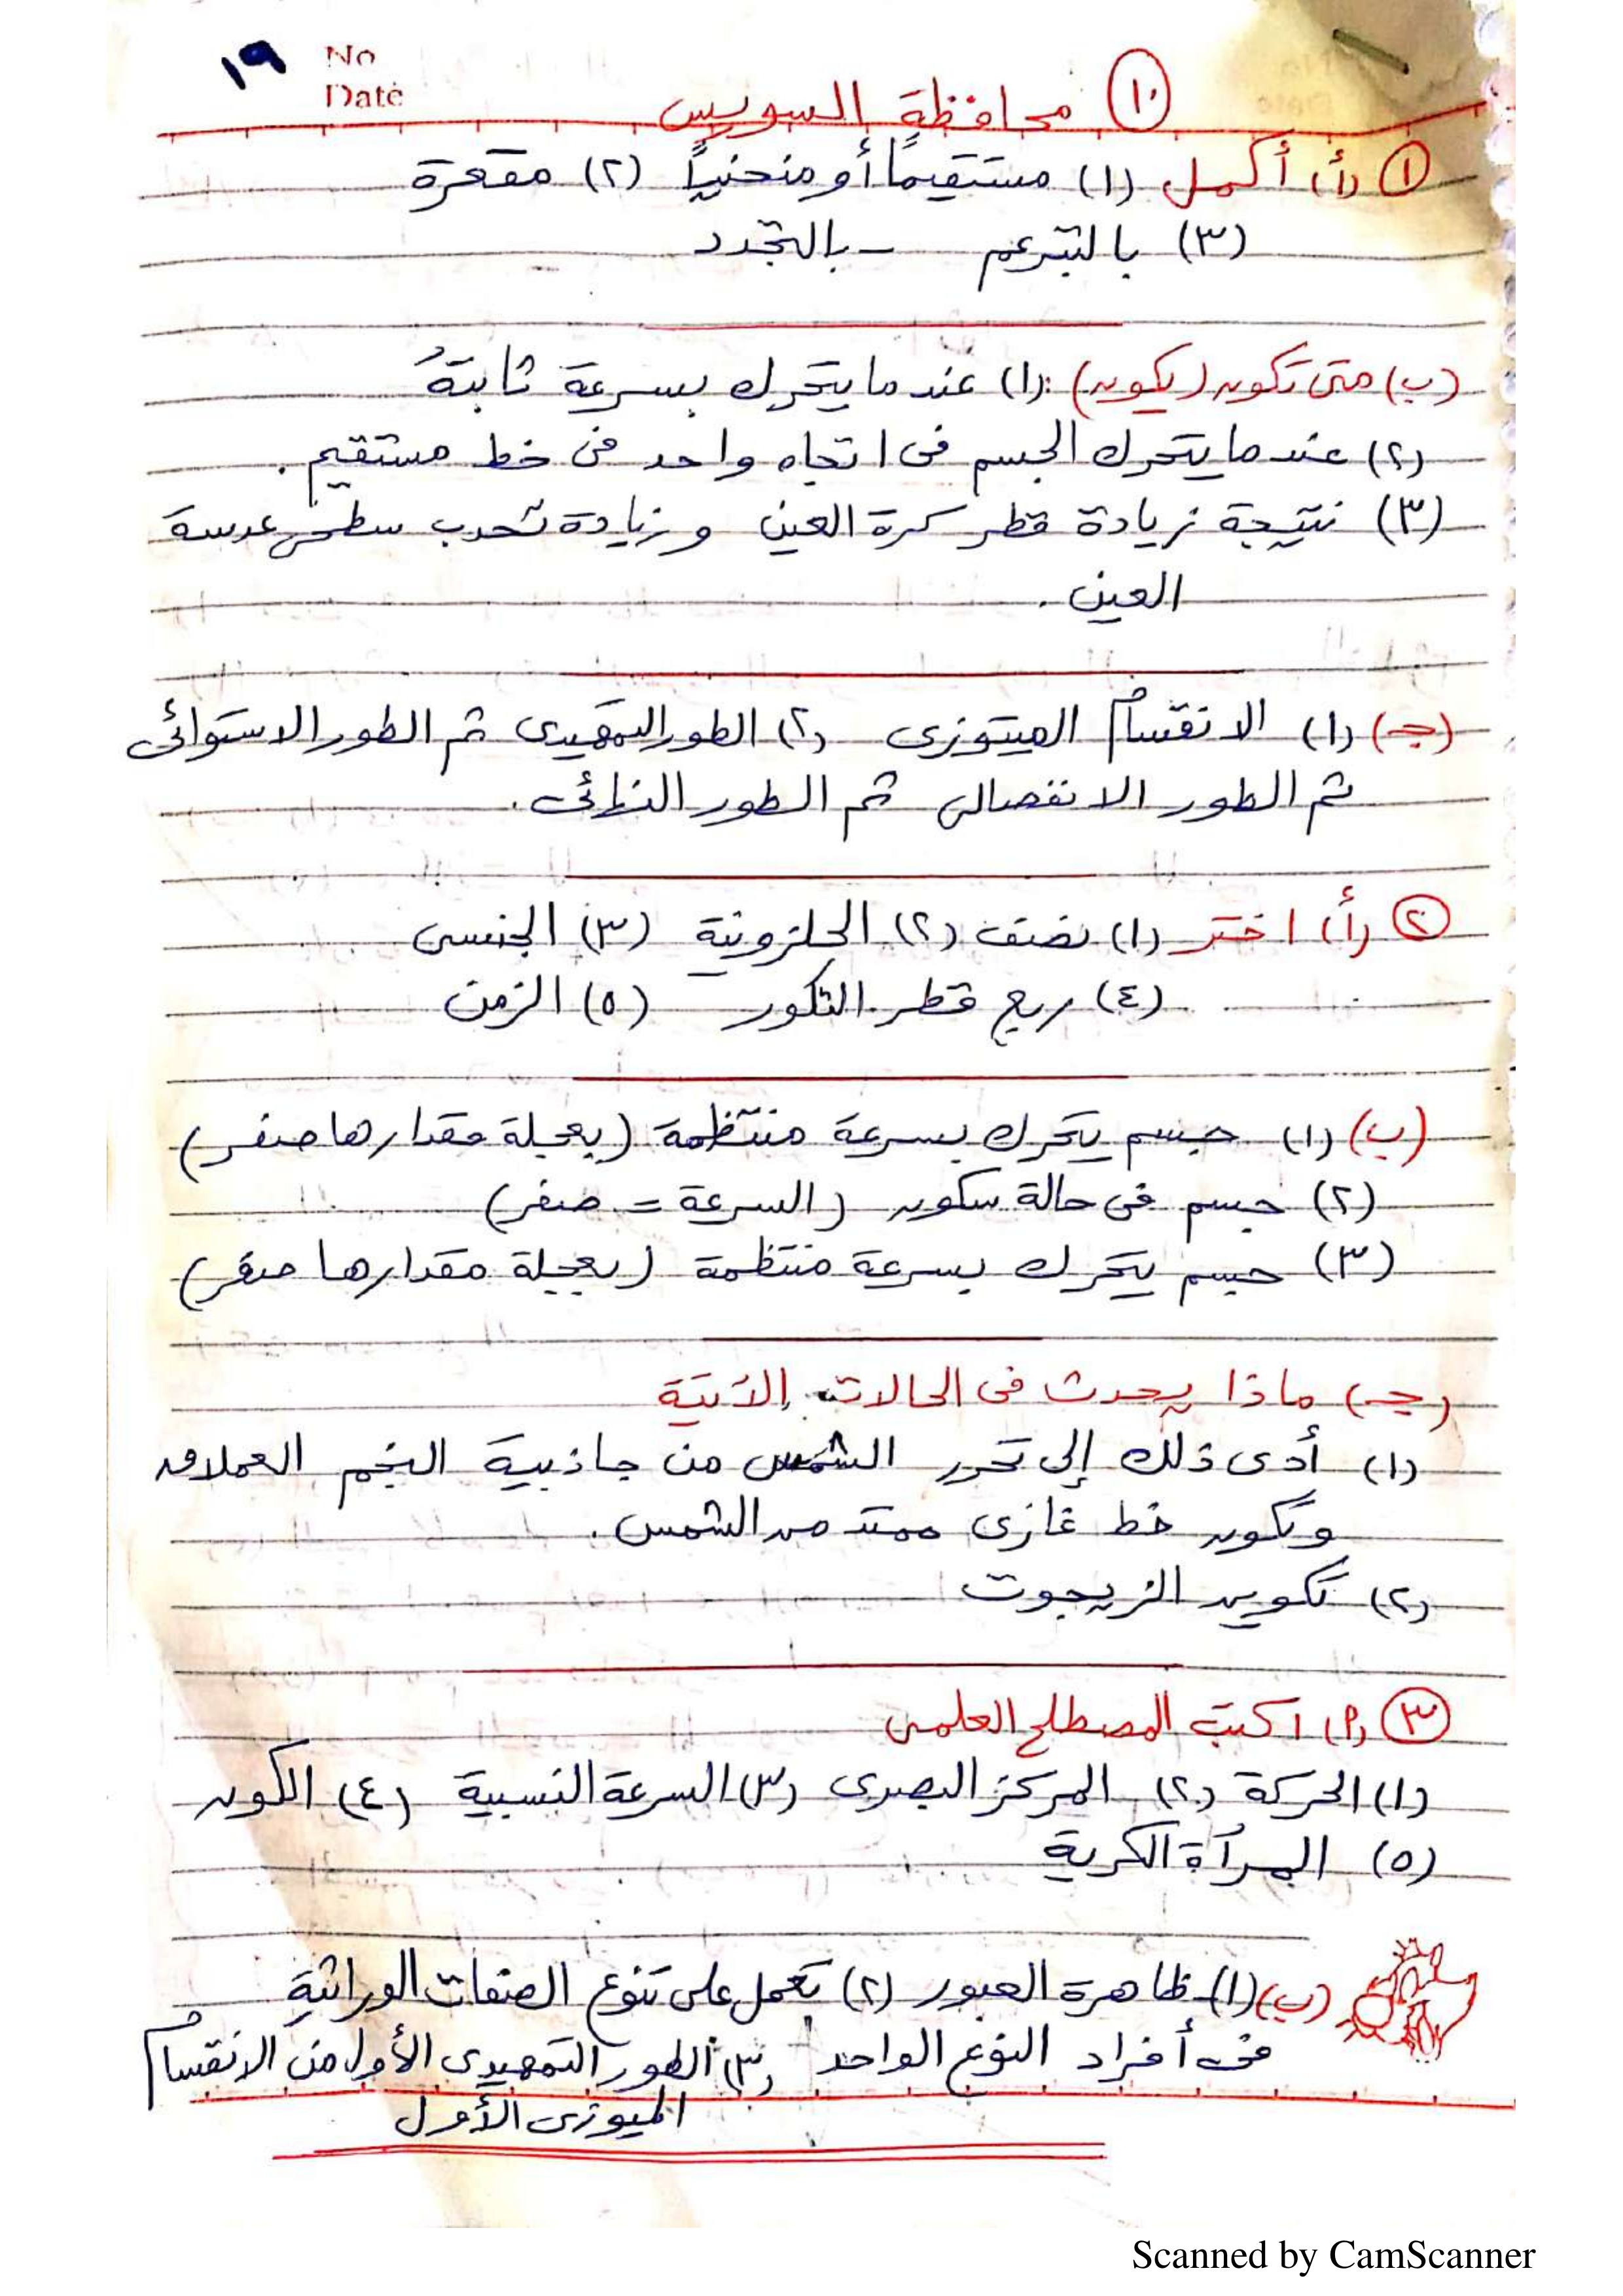 ١٩
No
Date
١٠ محافظة السويس
١ (أ) أكمل (١) مستقيماً أو منحنياً (٢) مقعرة
(٣) بالتبرعم - بالتجدد
(ب) متى تكون (يكون): (١) عندما يتحرك بسرعة ثابتة
(٢) عندما يتحرك الجسم فى اتجاه واحد فى خط مستقيم.
(٣) نتيجة زيادة قطر كرة العين وزيادة تحدب سطحى عدسة
العين.
(جـ) (١) الانقسام الميتوزى (٢) الطور التمهيدى ثم الطور الاستوائى
ثم الطور الانفصالى ثم الطور النهائى.
٢ (أ) اختر (١) نصف (٢) الحلزونية (٣) الجنسى
(٤) ربع قطر التكور (٥) الزمن
(ب) (١) جسم يتحرك بسرعة منتظمة (بعجلة مقدارها صفر)
(٢) جسم فى حالة سكون (السرعة = صفر)
(٣) جسم يتحرك بسرعة منتظمة (بعجلة مقدارها صفر)
(جـ) ماذا يحدث فى الحالات الآتية
(١) أدى ذلك إلى تحرر الشمس من جاذبية النجم العملاق
وتكون خط غازى ممتد من الشمس.
(٢) تكوين الزيجوت
٣ (أ) اكتب المصطلح العلمى
(١) الحركة (٢) المركز البصرى (٣) السرعة النسبية (٤) الكون
(٥) المرآة الكرية
(ب) (١) ظاهرة العبور (٢) تعمل على تنوع الصفات الوراثية
فى أفراد النوع الواحد (٣) الطور التمهيدى الأول من الانقسام
الميوزى الأول
Scanned by CamScanner